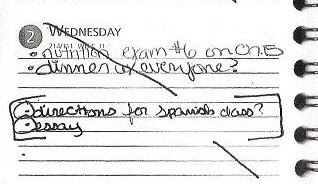 2 WEDNESDAY
• nutrition exam #6 on Ch.15
• dinner w/ everyone?
• directions for spanish class?
• essay